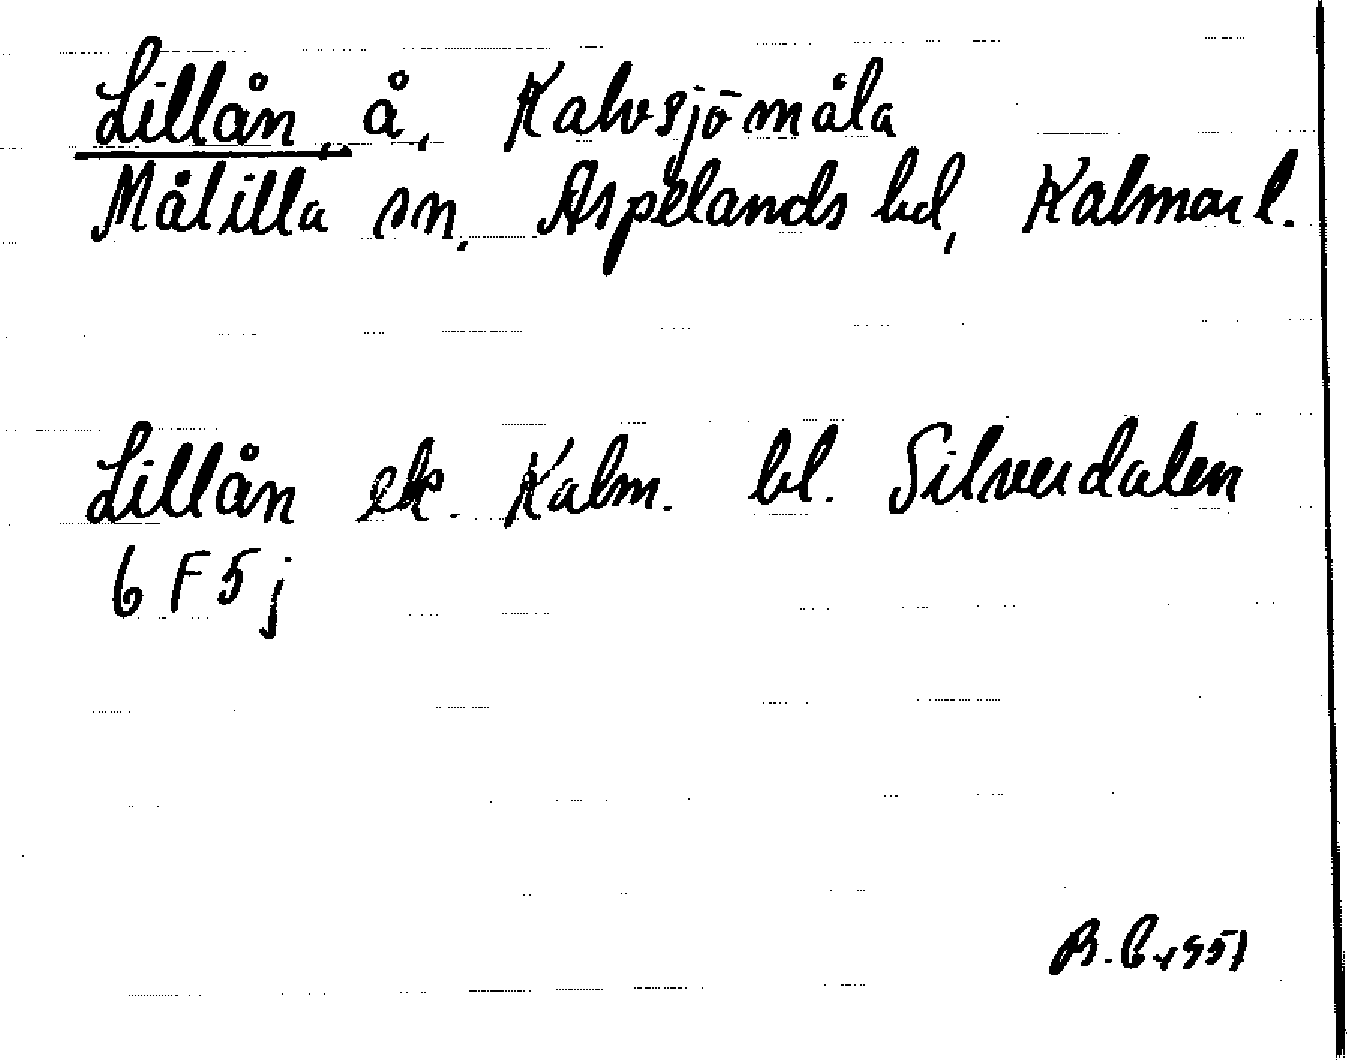 Lillån, å, Kalvsjömåla
Målilla sn, Aspelands hd, Kalmar l.
Lillån ek. Kalm. bl. Silverdalen
6 F 5 j